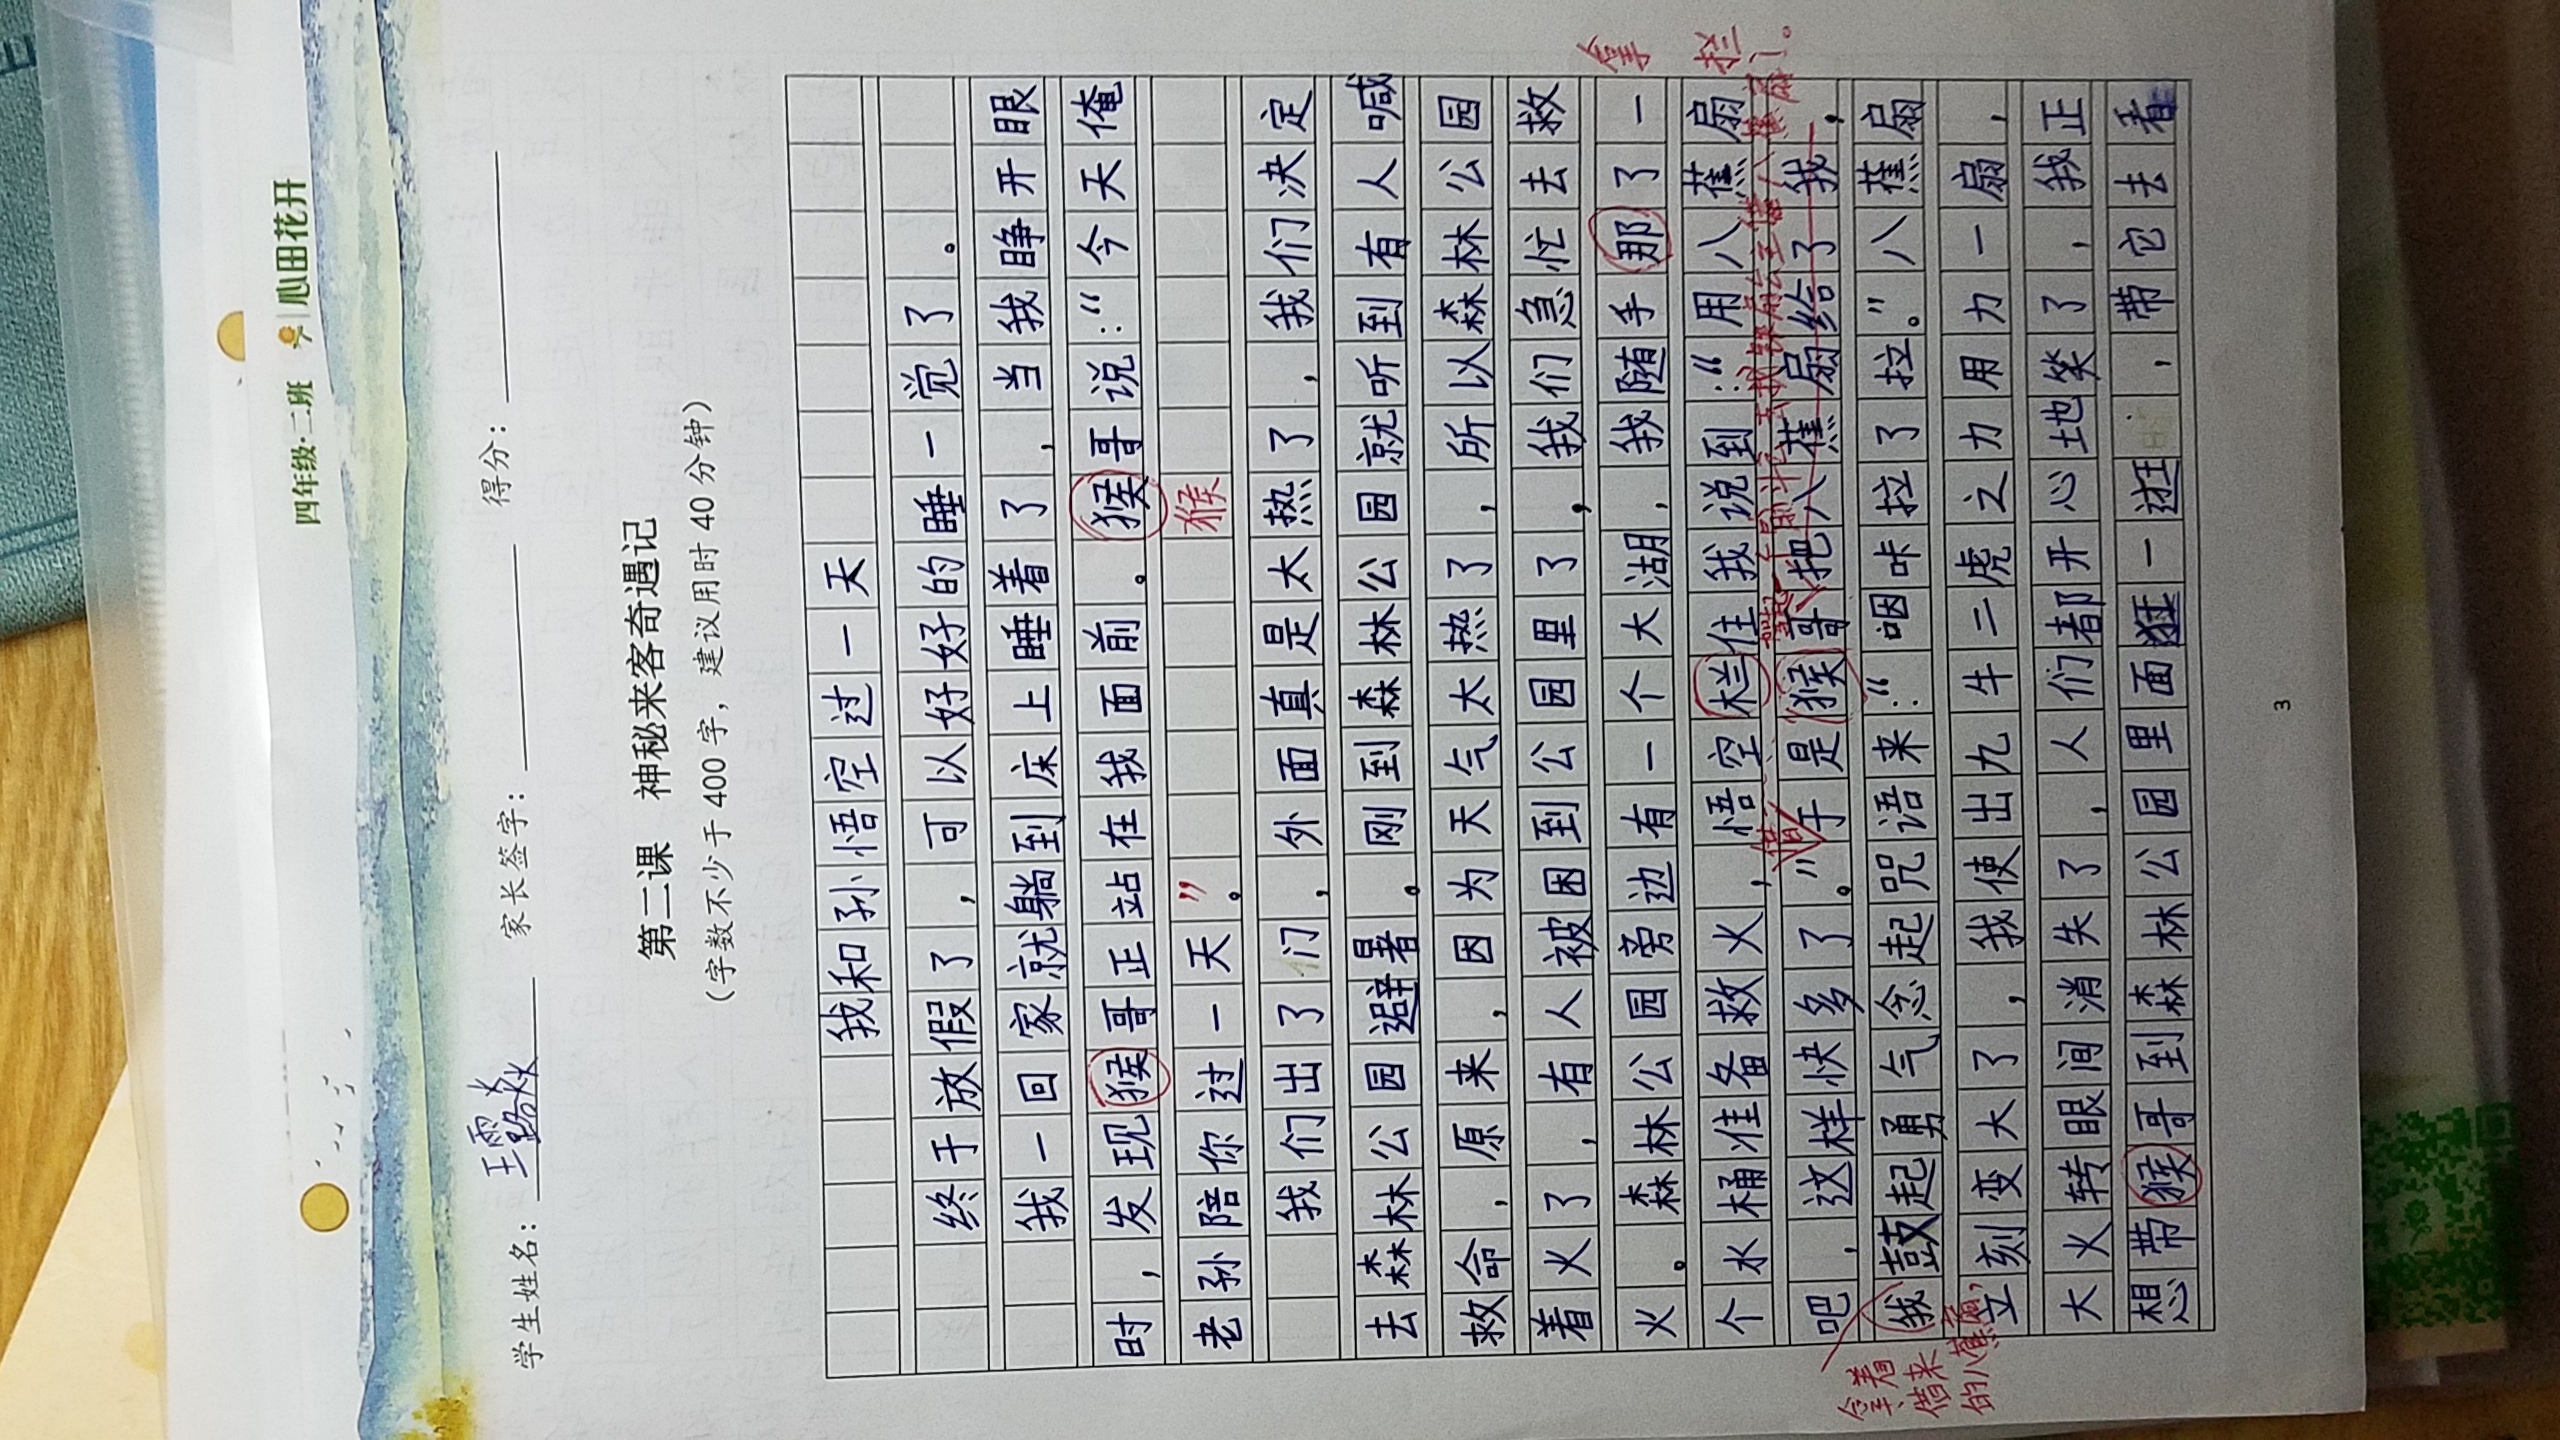 四年级·二班 心田花开
学生姓名：王露焱 家长签字： 得分：
第二课 神秘来客奇遇记
（字数不少于400字，建议用时40分钟）
我和孙悟空过一天
终于放假了，可以好好的睡一觉了。
我一回家就躺到床上睡着了，当我睁开眼
时，发现猴哥正站在我面前。猴哥说：“今天俺
猴
老孙陪你过一天”。
我们出了门，外面真是太热了，我们决定
去森林公园避暑。刚到森林公园就听到有人喊
救命，原来，因为天气太热了，所以森林公园
着火了，有人被困到公园里了，我们急忙去救
火。森林公园旁边有一个大湖，我随手那了一
拿
个水桶准备救火，悟空栏住我说到：“用八蕉扇
拦
吧，这样快多了。”于是猴哥把八蕉扇给了我，
我鼓起勇气念起咒语来：“咽咔拉了拉。”八蕉扇
拿着
借来
的八蕉扇，
立刻变大了，我使出九牛二虎之力用力一扇，
大火转眼间消失了，人们都开心地笑了，我正
想带猴哥到森林公园里面一逛，带它去看
3